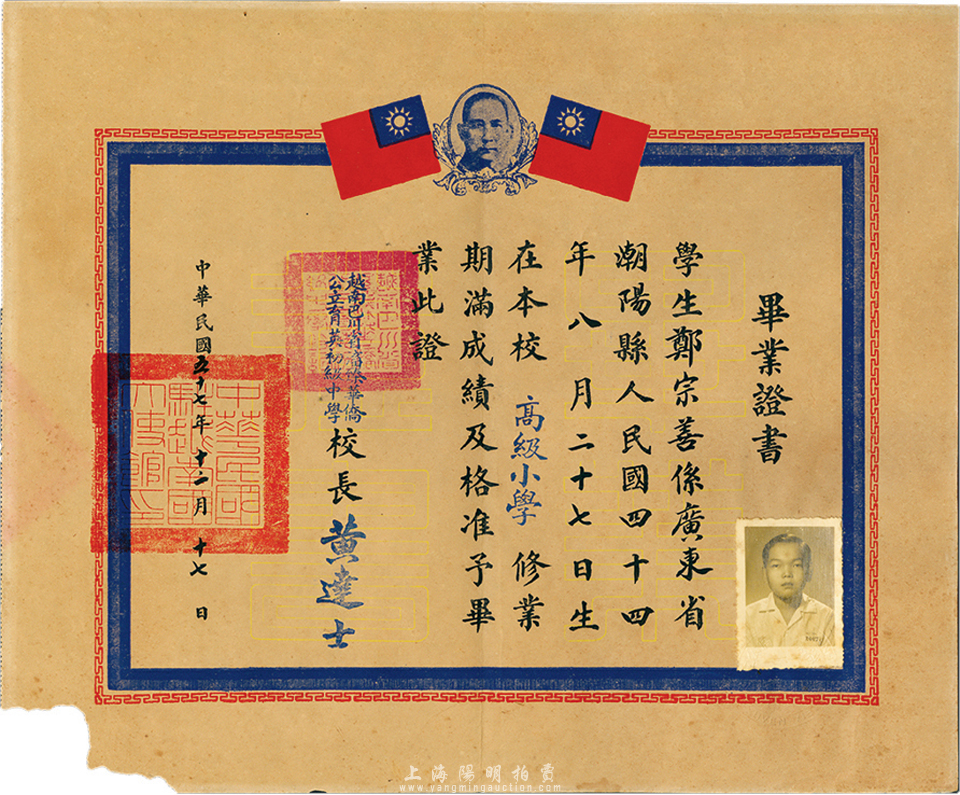 畢業證書
學生鄭宗善係廣東省
潮陽縣人民國四十四
年八月二十七日生
在本校高級小學修業
期滿成績及格准予畢
業此證
越南巴川省省會華僑
公立育英初級中學
校長黄達士
中華民國五十七年十二月十七日
中華民國
駐越南國
大使館印
上海陽明拍賣
www.yangmingauction.com